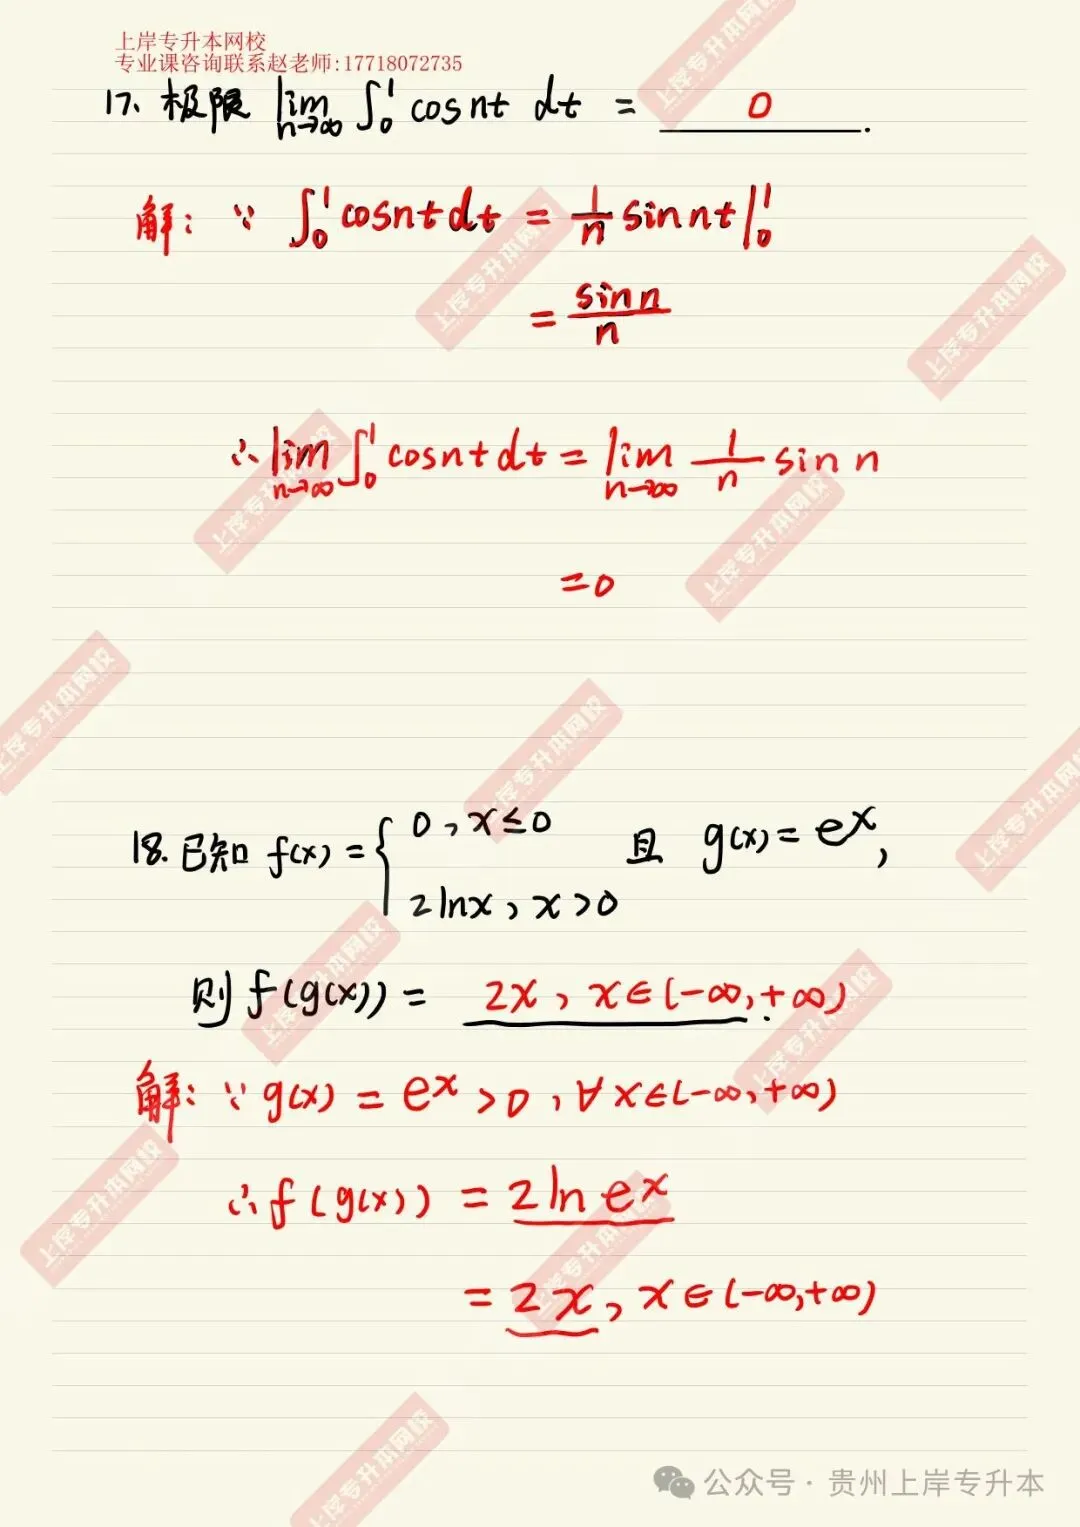 上岸专升本网校
专业课咨询联系赵老师:17718072735
17. 极限 lim n→∞ ∫₀¹ cosnt dt = 0 .
解: ∵ ∫₀¹ cosnt dt = 1/n sinnt |₀¹
= sin n / n
∴ lim n→∞ ∫₀¹ cosnt dt = lim n→∞ 1/n sin n
= 0
18. 已知 f(x) = { 0 , x≤0
2lnx , x>0 且 g(x) = eˣ,
则 f(g(x)) = 2x , x∈(-∞,+∞) .
解: ∵ g(x) = eˣ > 0 , ∀x∈(-∞,+∞)
∴ f(g(x)) = 2ln eˣ
= 2x , x∈(-∞,+∞)
公众号 · 贵州上岸专升本